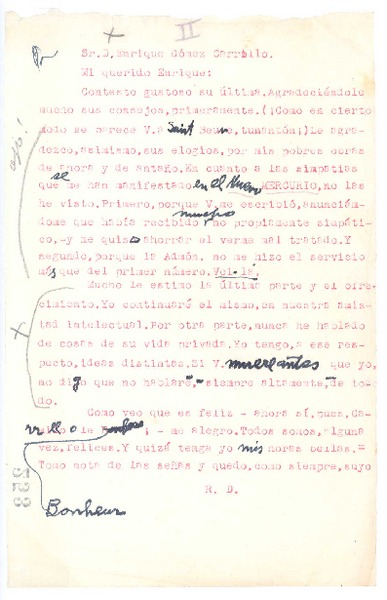 II
Sr.D.Enrique Gómez Carrillo.
Mi querido Enrique:
Contesto gustoso su última.Agradeciéndole
mucho sus consejos,primeramente.(¡Como es cierto
modo se parece V.a Saint Beuve,tunantón¡)Le agra-
dezco,asimismo,sus elogios,por mis pobres obras
de ahora y de antaño.En cuanto a las simpatías
que se me han manifestado en el Nuevo MERCURIO,no las
he visto.Primero,porque V.me escribió,anuncián-
dome que había recibido mucho no propiamente simpáti-
co,-y me quiso ahorrar el verme mal tratado.Y
segundo,porque la Admón. no me hizo el servicio
más que del primer número.Voi-lá.
Mucho le estimo la última parte y el ofre-
cimiento.Yo continuaré el mismo,en nuestra amis-
tad intelectual.Por otra parte,nunca he hablado
de cosas de su vida privada.Yo tengo,a ese res-
pecto,ideas distintas.Si V. muere antes que yo,
no digo que no hablaré,-siempre altamente,-de to-
do.
Como veo que es feliz - ahora sí,pues,Ca-
rrillo ¡ - me alegro.Todos somos,alguna
vez,felices.Y quizá tenga yo mis horas bellas.=
Tomo nota de las señas y quedo,como siempre,suyo
R. D.
Bonheur
ojo!